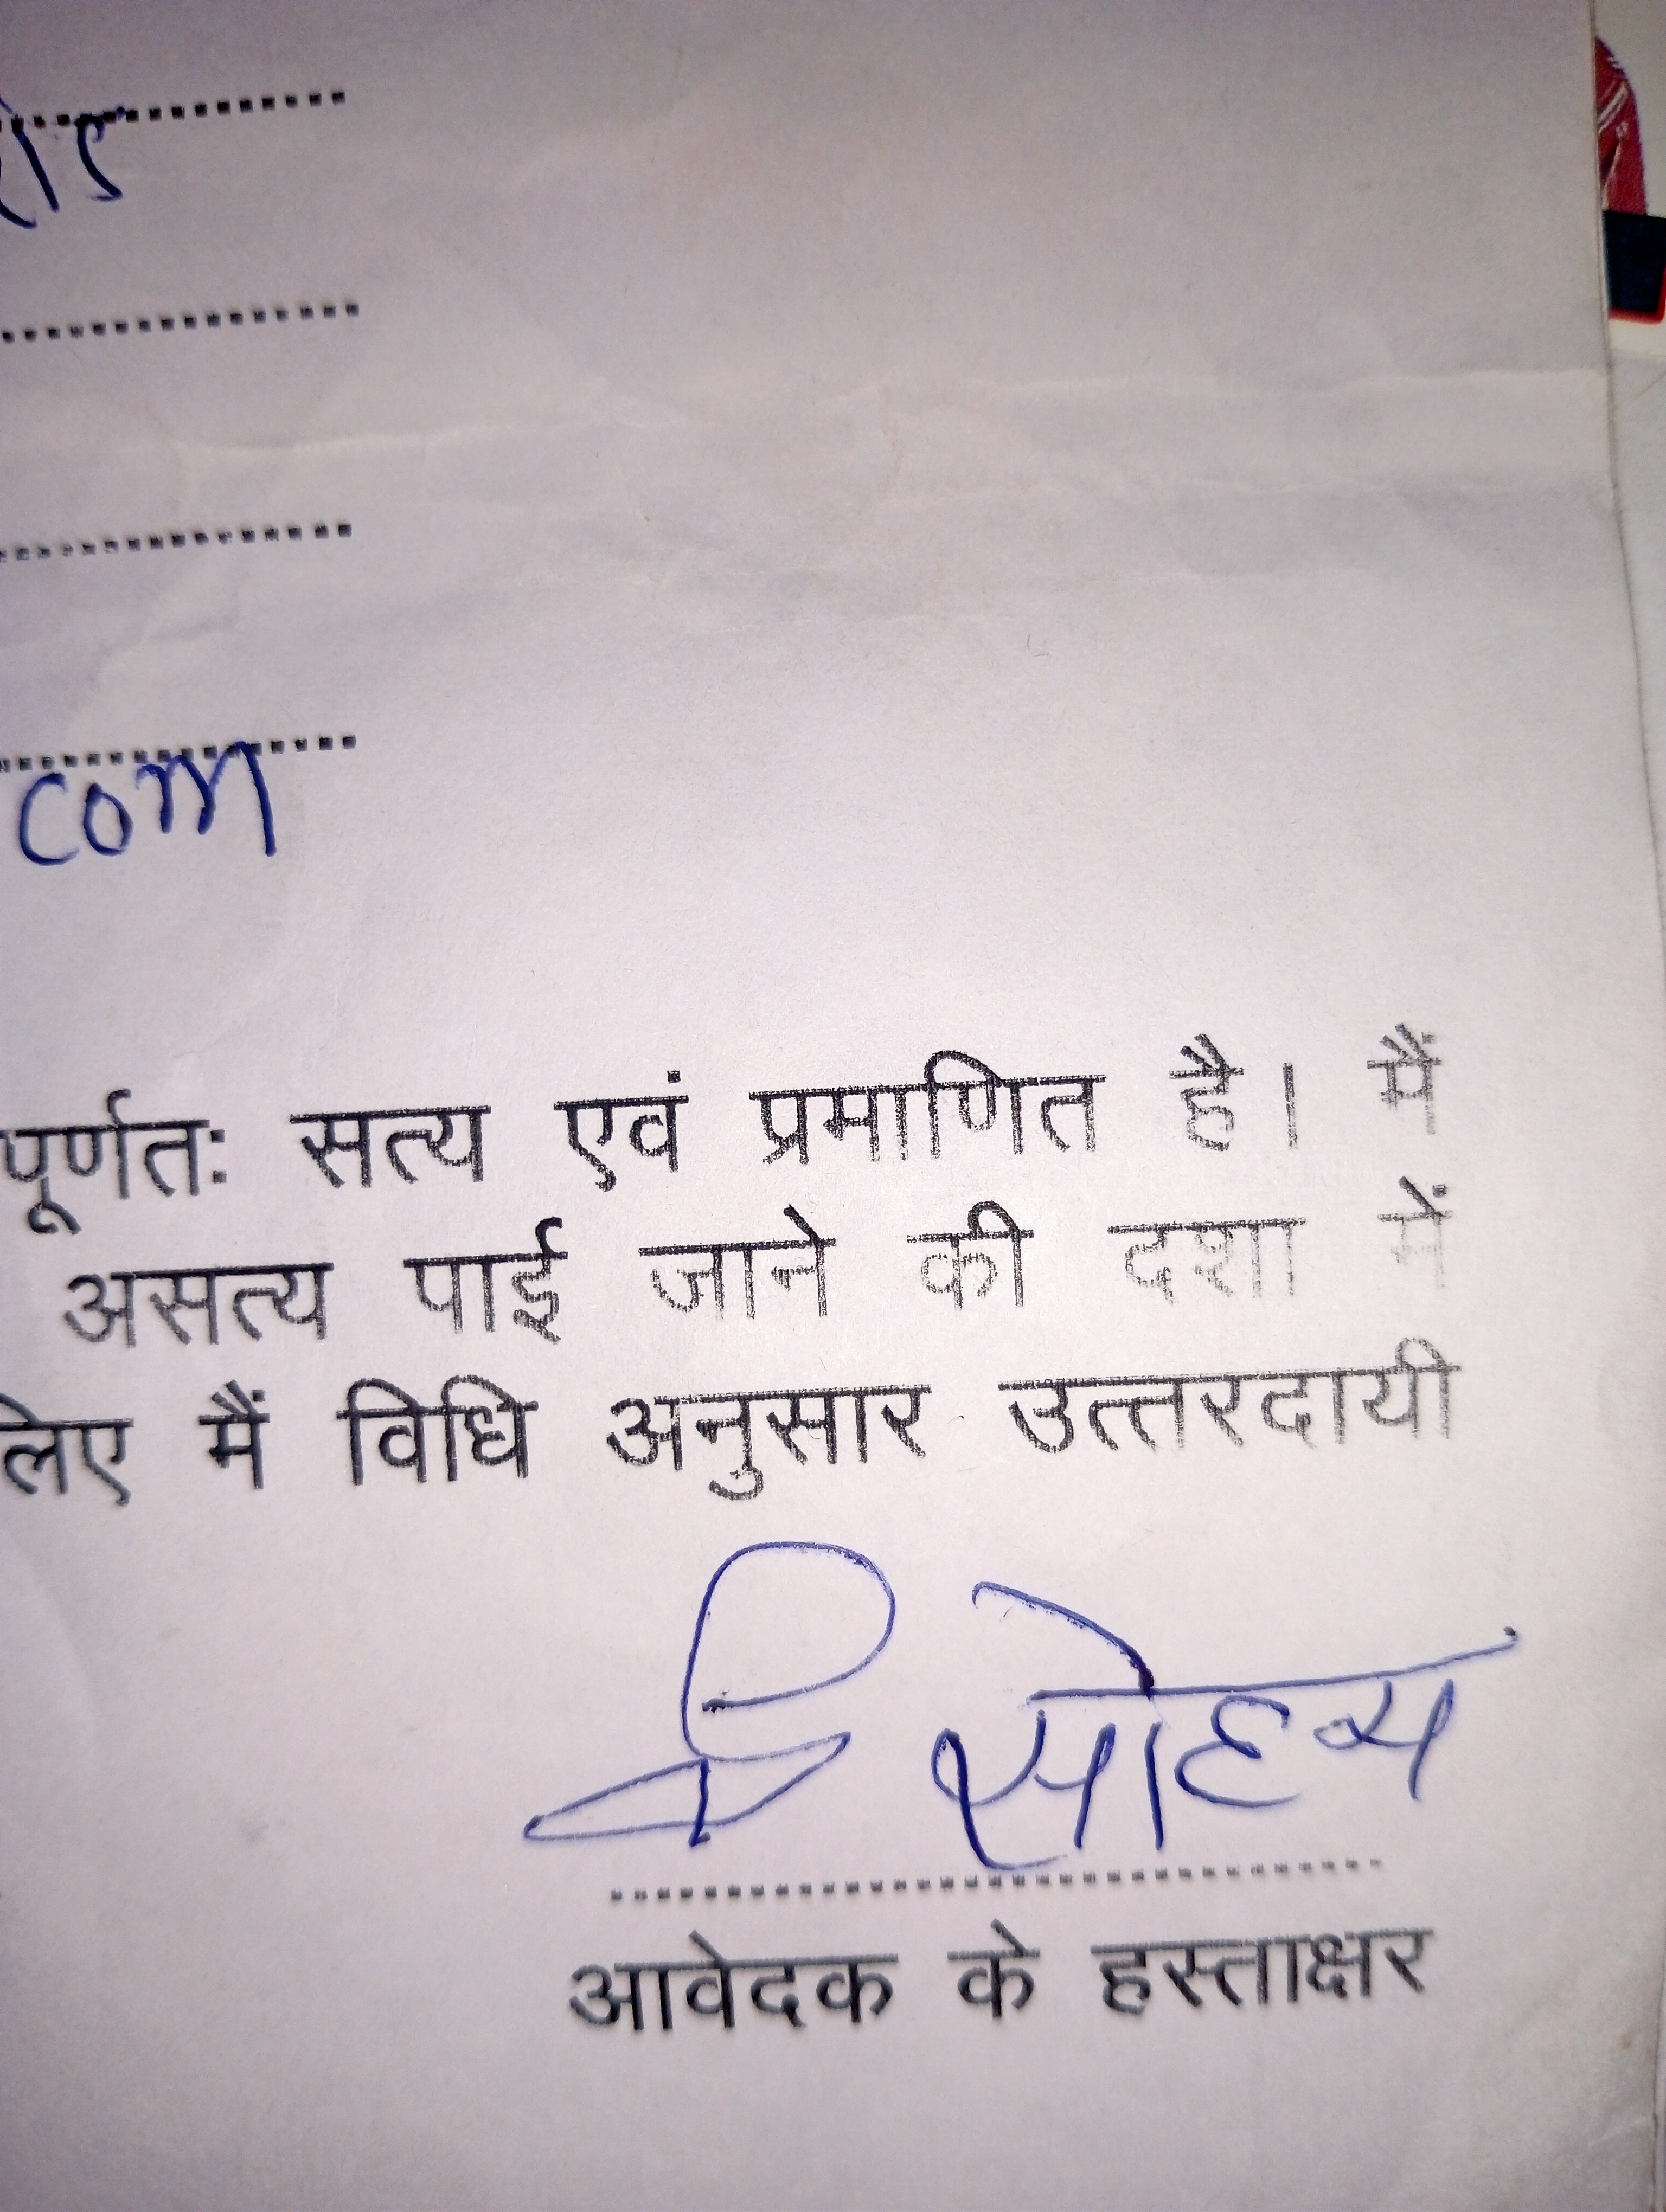 com
पूर्णतः सत्य एवं प्रमाणित है। मैं
असत्य पाई जाने की दशा में
लिए मैं विधि अनुसार उत्तरदायी
आवेदक के हस्ताक्षर